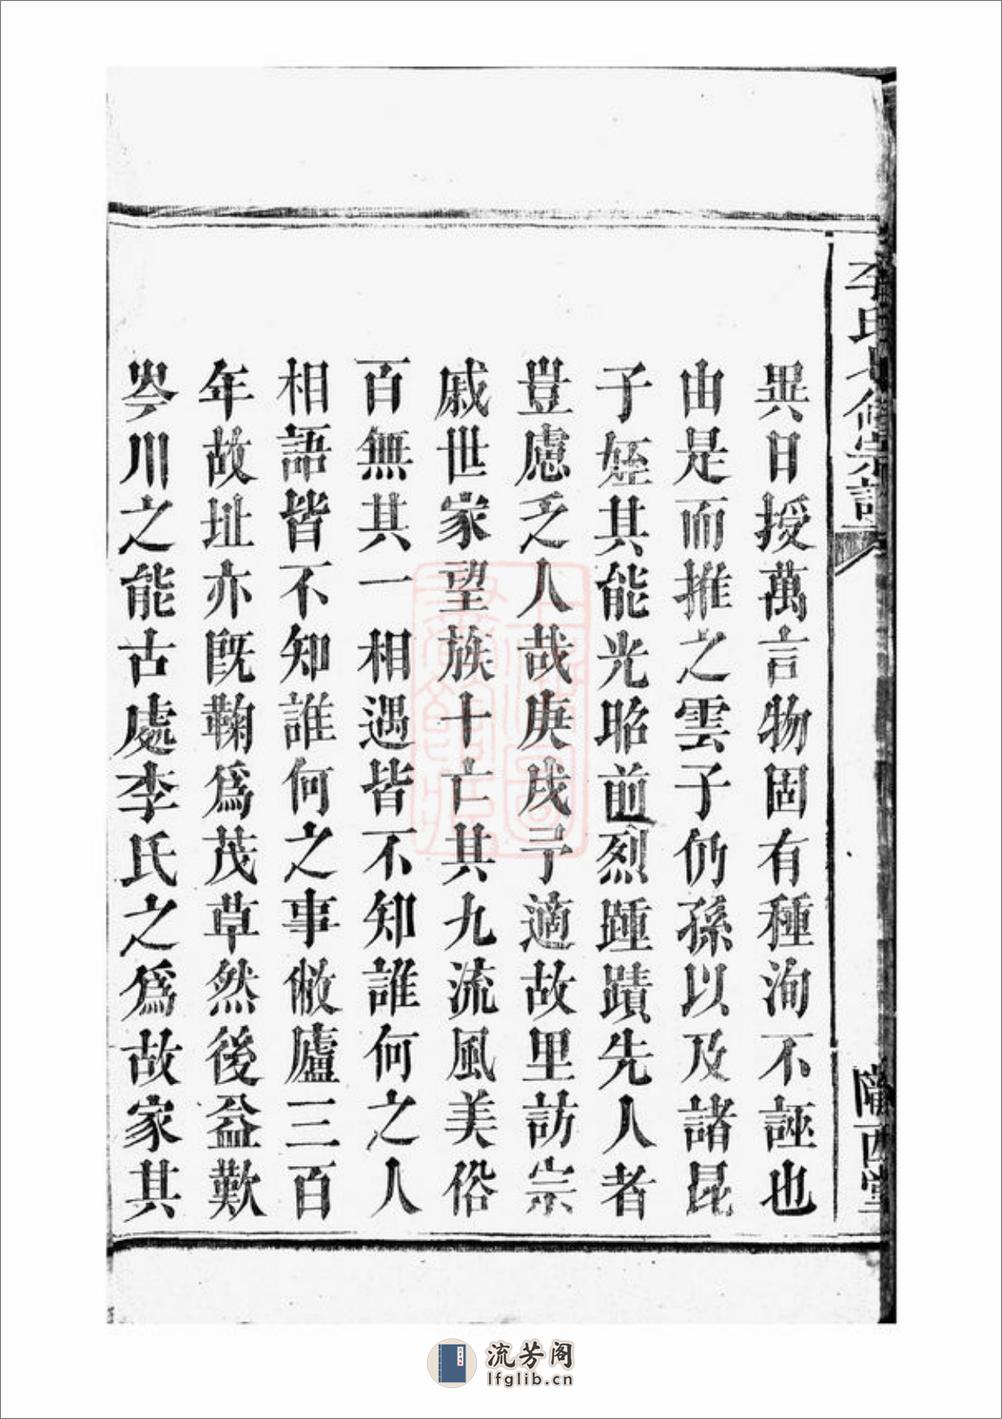 李氏九修宗譜
隴西堂
異日授萬言物固有種洵不誣也
由是而推之雲子仍孫以及諸昆
子姪其能光昭前烈踵蹟先人者
豈慮乏人哉庚戌予適故里訪宗
戚世家望族十亡其九流風美俗
百無其一相遇皆不知誰何之人
相語皆不知誰何之事敝廬三百
年故址亦既鞠爲茂草然後益歎
岑川之能古處李氏之爲故家其
流芳阁
lfglib.cn